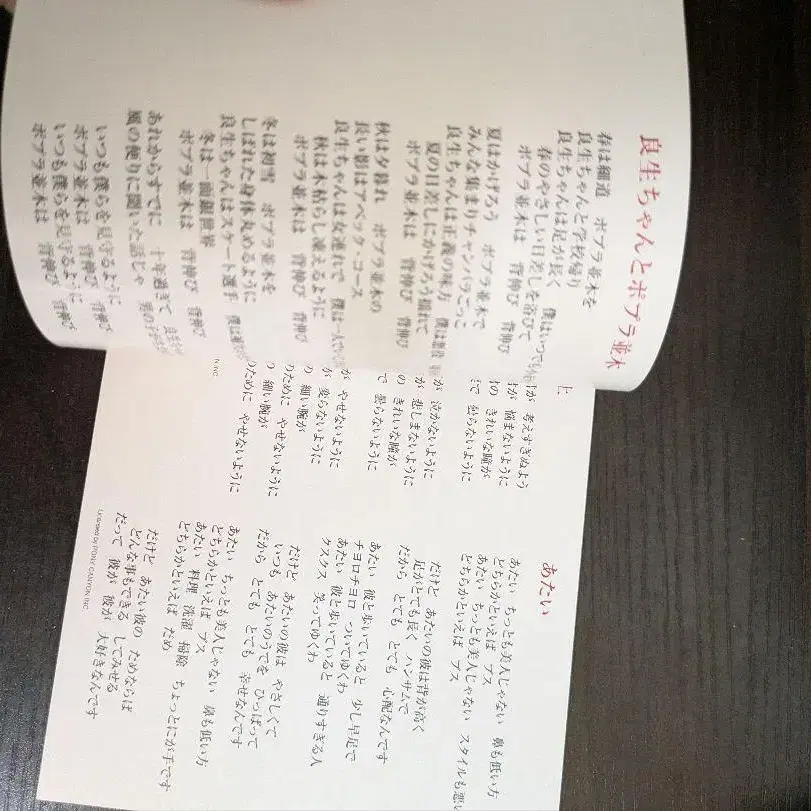 良生ちゃんとポプラ並木
春は細道 ポプラ並木を
良生ちゃんと学校帰り
良生ちゃんは足が長く 僕はいつでも
春のやさしい日差しを浴びて
ポプラ並木は 背伸び 背伸び
夏はかげろう ポプラ並木で
みんな集まりチャンバラごっこ
良生ちゃんは正義の味方 僕は悪役
夏の日差しにかげろう揺れて
ポプラ並木は 背伸び 背伸び
秋は夕暮れ ポプラ並木の
長い影はアベック・コース
良生ちゃんは女連れで 僕は一人で
秋は木枯らし凍えるように
ポプラ並木は 背伸び 背伸び
冬は初雪 ポプラ並木を
しばれた身体丸めるように
良生ちゃんはスケート選手 僕は
冬は一面銀世界
ポプラ並木は 背伸び 背伸び
あれからすでに 十年過ぎて
風の便りに聞いた話じゃ
いつも僕らを見守るように
ポプラ並木は 背伸び 背伸び
いつも僕らを見守るように
ポプラ並木は 背伸び 背伸び
上
が 考えすぎぬよう
が 悩まないように
の きれいな瞳が
で 曇らないように
が 泣かないように
が 悲しまないように
の きれいな瞳が
で 曇らないように
が やせないように
が 変らないように
の 細い腕が
のために やせないように
の 細い腕が
のために やせないように
N INC.
あたい
あたい ちっとも美人じゃない 鼻も低い方
どちらかといえば ブス
あたい ちっとも美人じゃない スタイルも悪い
どちらかといえば ブス
だけど あたいの彼は背が高く
足がとても長く ハンサムで
だから とても とても 心配なんです
あたい 彼と歩いていると 少し早足で
チヨロチヨロ ついてゆくわ
あたい 彼と歩いていると 通りすぎる人
クスクス 笑ってゆくわ
だけど あたいの彼は やさしくて
いつも あたいのうでを ひっぱって
だから とても とても 幸せなんです
あたい ちっとも美人じゃない 鼻も低い方
どちらかといえば ブス
あたい 料理 洗濯 掃除 ちょっとにが手です
どちらかといえば だめ
だけど あたい彼の ためならば
どんな事もできる してみせる
だって 彼が 彼が 大好きなんです
Licensed by PONY CANYON INC.